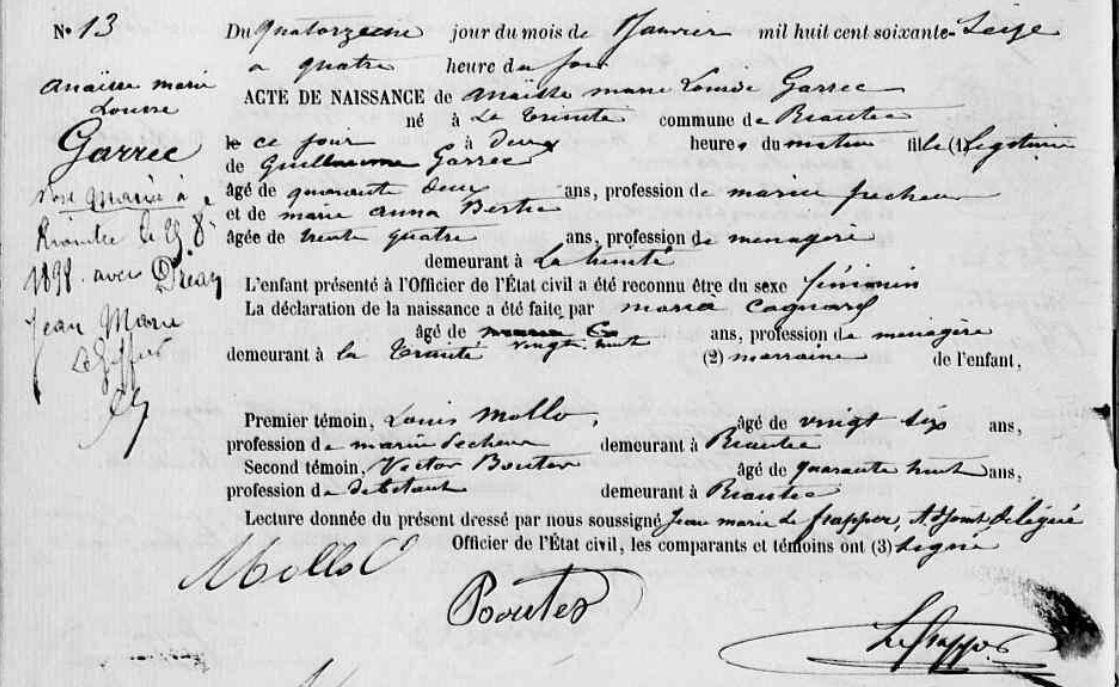 N° 13
Du Quatorzieme jour du mois de Janvier mil huit cent soixante-Seize
a quatre heure du soir
ACTE DE NAISSANCE de Anaïsse marie Louise Garrec
né à La Trinité commune de Riantec
le ce jour à deux heures du matin fille (1) Légitime
de Guillaume Garrec
âgé de quarante deux ans, profession de marin pecheur
et de marie anna Bertic
âgée de trente quatre ans, profession de menagere
demeurant à La trinité
L'enfant présenté à l'Officier de l'État civil a été reconnu être du sexe féminin
La déclaration de la naissance a été faite par maria Cagnard
âgé de vingt huit ans, profession de menagère
demeurant à la Trinité (2) marraine de l'enfant,
Premier témoin, Louis Mollo, âgé de vingt six ans,
profession de marin Pecheur demeurant à Riantec
Second témoin, Victor Bouter âgé de quarante huit ans,
profession de debitant demeurant à Riantec
Lecture donnée du présent dressé par nous soussigné Jean marie Le frapper, Adjoint délégué
Officier de l'État civil, les comparants et témoins ont (3) signé
Mollo L
Bouter
Le frapper
Anaïsse marie
Louise
Garrec
Mariée à
Riantec le
1898 avec Dréan
Jean Marie